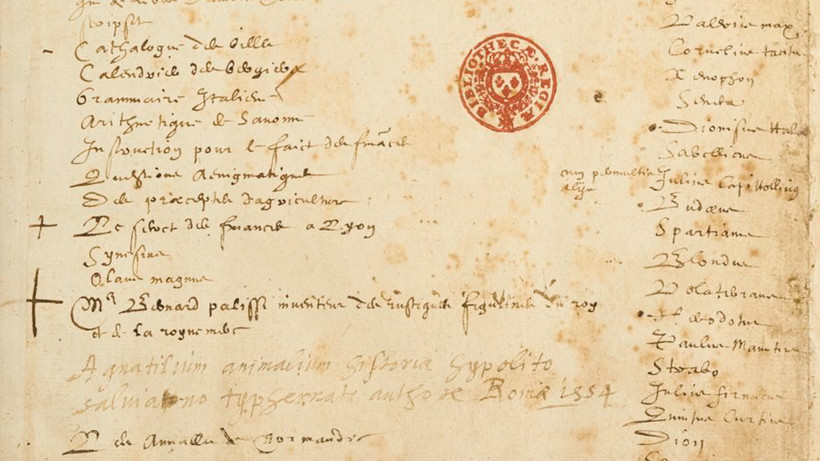 Cathalogue des villes
Calendrier des bergiers
Grammaire Italiene
Arithmetique de Sauonne
Instruction pour le faict des finances
Questions Aenigmatiques
Des preceptes dagriculture
à Lyon
Synesius
Olaus magnus
Mre Bernard palissi inventeur des rustiques figulines du roy
et de la royne mere
Aquatilium animalium historia hypolito
salviano typhernate authore Romae 1554
Annalles de Normandie
BIBLIOTHECÆ REGIÆ
Valerius max
Cornelius tacitus
Xenophon
Seneca
Dionisius Hali
Sabellicus
Julius Capittollinus
Budaeus
Spartianus
Blondus
Volateranus
Herodotus
Paulus Manutius
Strabo
Julius firmicus
Quintus Curtius
Dion